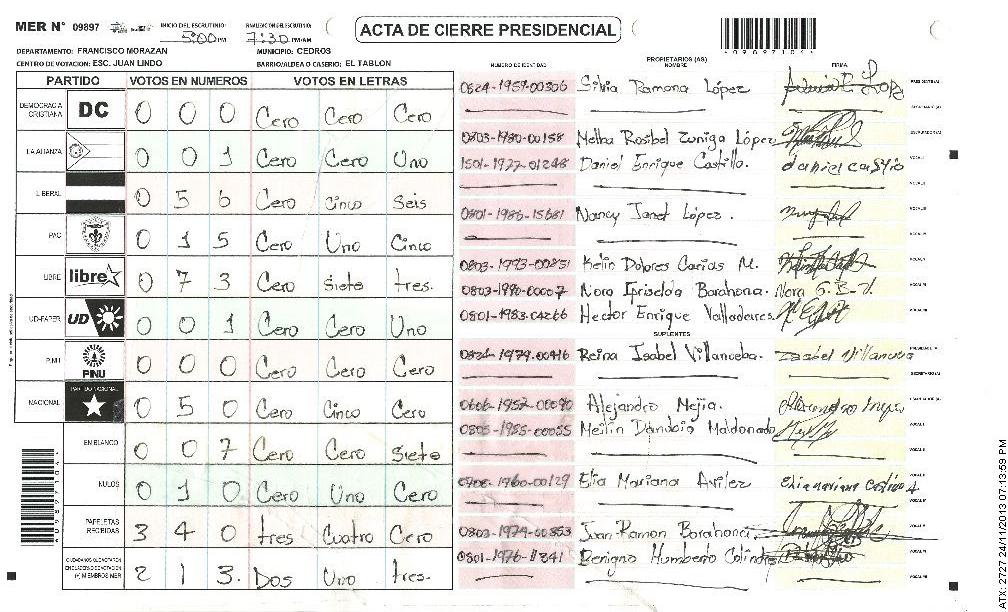 MER N° 09897
INICIO DEL ESCRUTINIO: 5:00 PM
FINALIZACION DEL ESCRUTINIO: 7:30 PM/AM
ACTA DE CIERRE PRESIDENCIAL
DEPARTAMENTO: FRANCISCO MORAZAN
MUNICIPIO: CEDROS
CENTRO DE VOTACION: ESC. JUAN LINDO
BARRIO/ALDEA O CASERIO: EL TABLON
PARTIDO VOTOS EN NUMEROS VOTOS EN LETRAS
DEMOCRACIA CRISTIANA DC 0 0 0 Cero Cero Cero
LA ALIANZA 0 0 1 Cero Cero Uno
LIBERAL 0 5 6 Cero Cinco Seis
PAC 0 1 5 Cero Uno Cinco
LIBRE libre 0 7 3 Cero Siete tres.
UD-FAPER UD 0 0 1 Cero Cero Uno
PINU PINU 0 0 0 Cero Cero Cero
NACIONAL PARTIDO NACIONAL 0 5 0 Cero Cinco Cero
EN BLANCO 0 0 7 Cero Cero Siete
NULOS 0 1 0 Cero Uno Cero
PAPELETAS RECIBIDAS 3 4 0 tres Cuatro Cero
(Y) MIEMBROS MER 2 1 3. Dos Uno tres.
PROPIETARIOS (AS)
NUMERO DE IDENTIDAD NOMBRE FIRMA
0824-1957-00306 Silvia Ramona López
0803-1980-00158 Melba Rosibel Zuniga López
1501-1977-01248 Daniel Enrique Castillo. daniel castillo
0801-1986-15681 Nancy Janet López.
0803-1993-00851 Kelin Dolores Carias M.
0803-1990-00007 Nora Griselda Barahona. Nora G. B.
0801-1983-04266 Hector Enrique Valladares
SUPLENTES
0824-1974-00416 Reina Isabel Villanueba. Isabel Villanueva
0606-1957-00090 Alejandro Mejia.
0805-1985-00055 Meilin Danubia Maldonado
0708-1960-00129 Elia Mariana Avilez
0803-1974-00853 Juan Ramon Barahona
Benigno Humberto Colindres
ATX: 2727 24/11/2013 07:13:59 PM